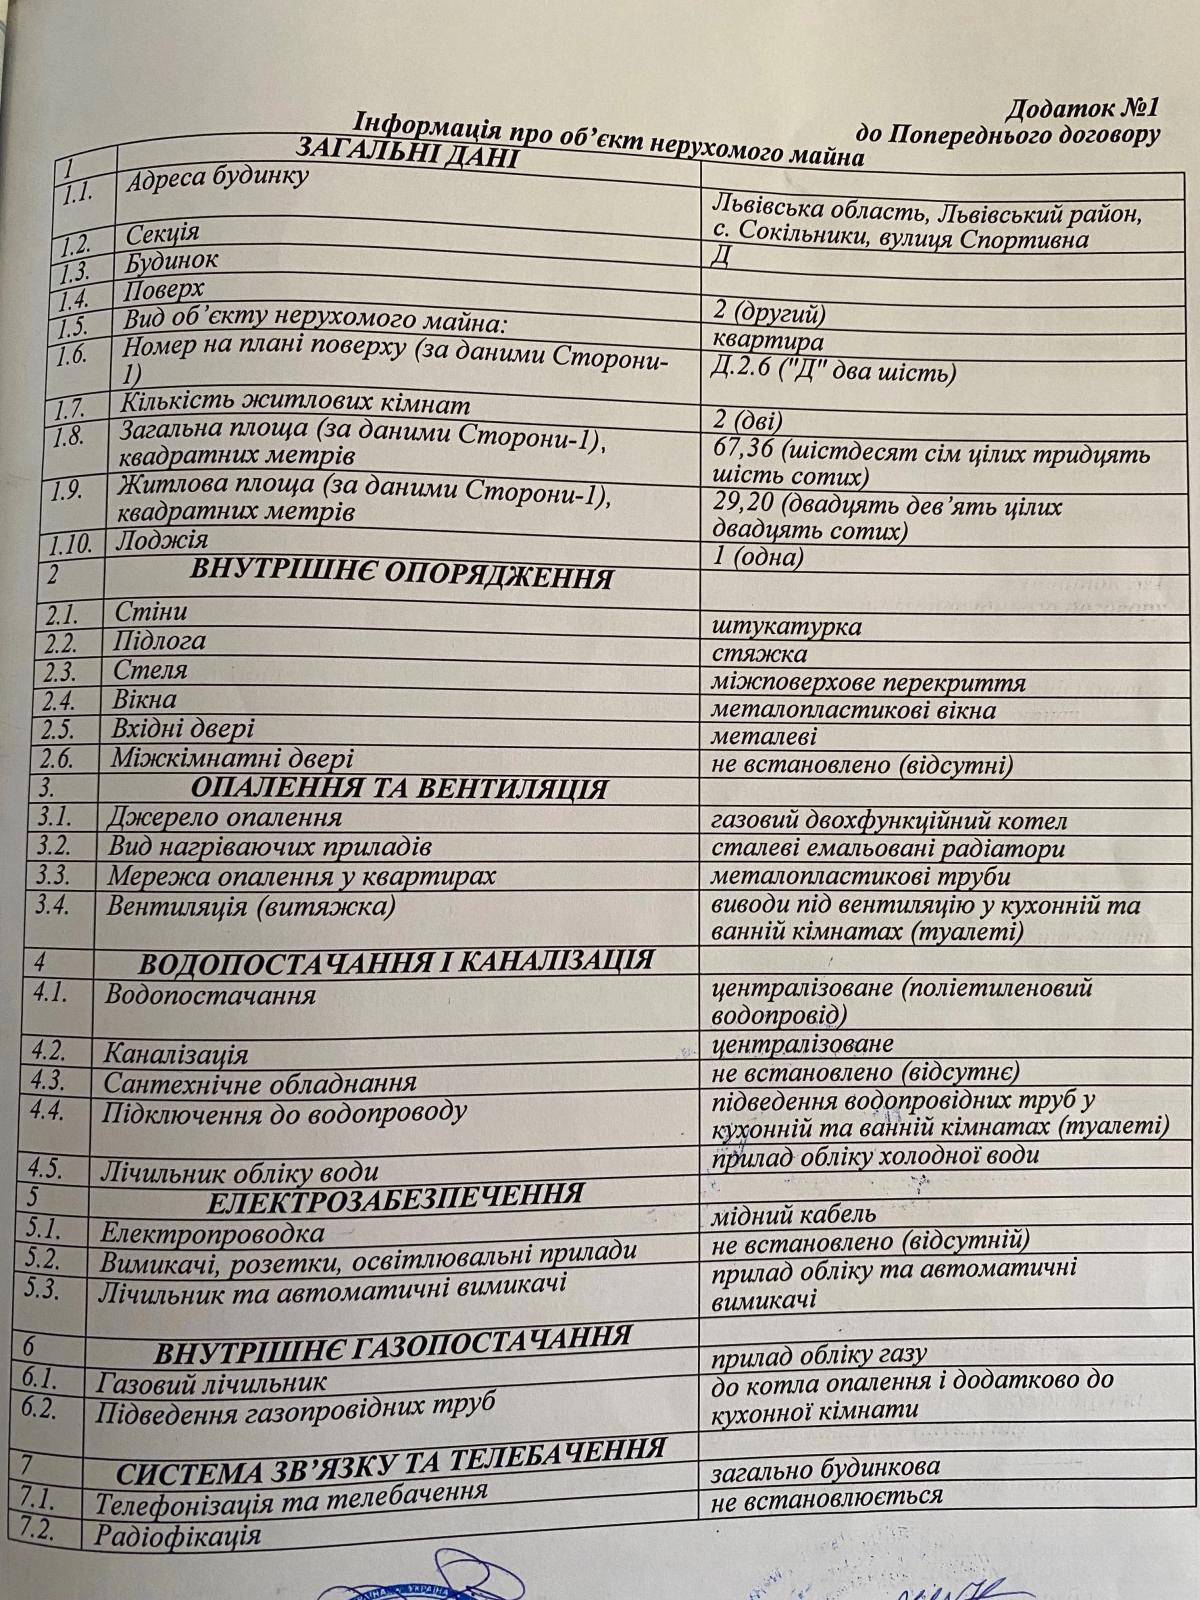 Додаток №1
до Попереднього договору
Інформація про об’єкт нерухомого майна
1 ЗАГАЛЬНІ ДАНІ
1.1. Адреса будинку Львівська область, Львівський район,
с. Сокільники, вулиця Спортивна
1.2. Секція Д
1.3. Будинок
1.4. Поверх 2 (другий)
1.5. Вид об’єкту нерухомого майна: квартира
1.6. Номер на плані поверху (за даними Сторони-
1) Д.2.6 ("Д" два шість)
1.7. Кількість житлових кімнат 2 (дві)
1.8. Загальна площа (за даними Сторони-1), 67,36 (шістдесят сім цілих тридцять
квадратних метрів шість сотих)
1.9. Житлова площа (за даними Сторони-1), 29,20 (двадцять дев’ять цілих
квадратних метрів двадцять сотих)
1.10. Лоджія 1 (одна)
2 ВНУТРІШНЄ ОПОРЯДЖЕННЯ
2.1. Стіни штукатурка
2.2. Підлога стяжка
2.3. Стеля міжповерхове перекриття
2.4. Вікна металопластикові вікна
2.5. Вхідні двері металеві
2.6. Міжкімнатні двері не встановлено (відсутні)
3. ОПАЛЕННЯ ТА ВЕНТИЛЯЦІЯ
3.1. Джерело опалення газовий двохфункційний котел
3.2. Вид нагріваючих приладів сталеві емальовані радіатори
3.3. Мережа опалення у квартирах металопластикові труби
3.4. Вентиляція (витяжка) виводи під вентиляцію у кухонній та
ванній кімнатах (туалеті)
4 ВОДОПОСТАЧАННЯ І КАНАЛІЗАЦІЯ
4.1. Водопостачання централізоване (поліетиленовий
водопровід)
4.2. Каналізація централізоване
4.3. Сантехнічне обладнання не встановлено (відсутнє)
4.4. Підключення до водопроводу підведення водопровідних труб у
кухонній та ванній кімнатах (туалеті)
4.5. Лічильник обліку води прилад обліку холодної води
5 ЕЛЕКТРОЗАБЕЗПЕЧЕННЯ
5.1. Електропроводка мідний кабель
5.2. Вимикачі, розетки, освітлювальні прилади не встановлено (відсутній)
5.3. Лічильник та автоматичні вимикачі прилад обліку та автоматичні
вимикачі
6 ВНУТРІШНЄ ГАЗОПОСТАЧАННЯ
6.1. Газовий лічильник прилад обліку газу
6.2. Підведення газопровідних труб до котла опалення і додатково до
кухонної кімнати
7 СИСТЕМА ЗВ’ЯЗКУ ТА ТЕЛЕБАЧЕННЯ
7.1. Телефонізація та телебачення загально будинкова
7.2. Радіофікація не встановлюється
УКРАЇНА